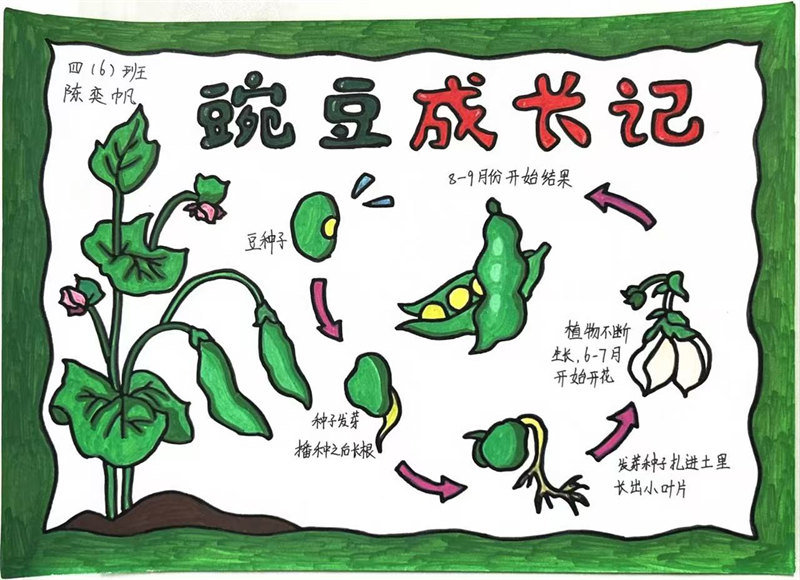 四(6)班
陈奕帆
豌豆成长记
8-9月份开始结果
豆种子
植物不断
生长,6-7月
开始开花
种子发芽
播种之后长根
发芽种子扎进土里
长出小叶片